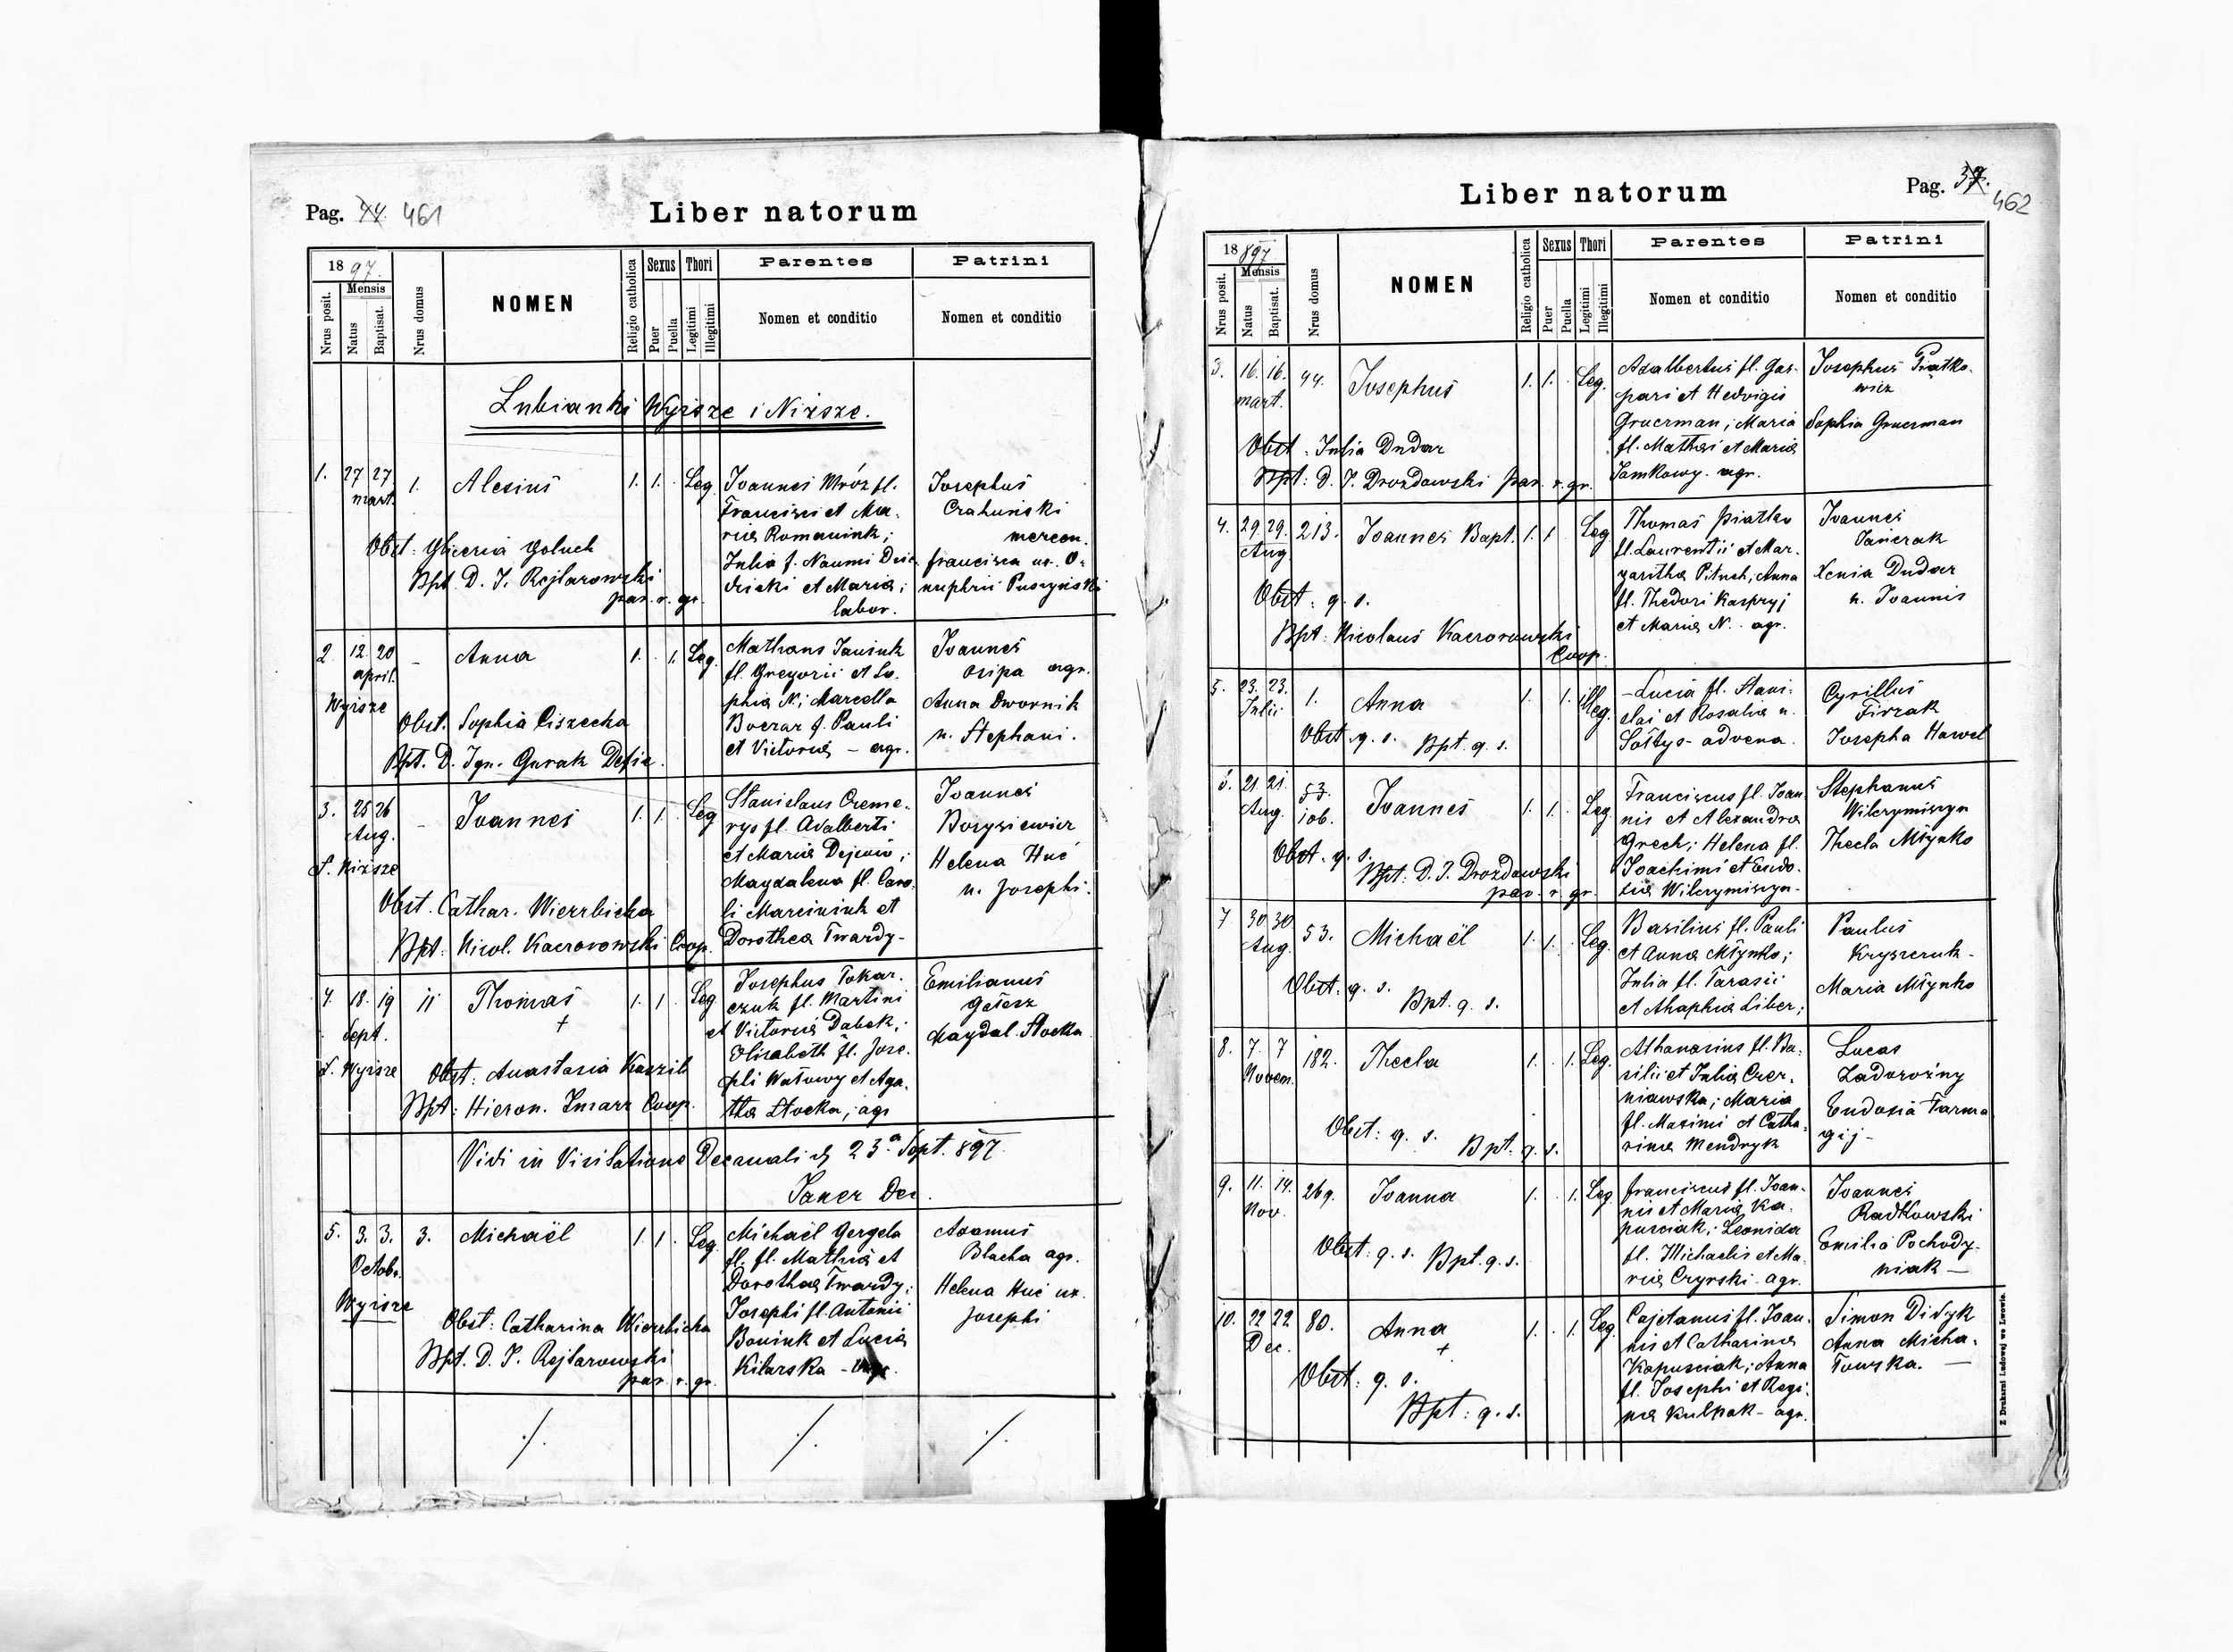 Pag. 44. 461
Liber natorum
1897.
Nrus posit.
Mensis
Natus
Baptisat.
Nrus domus
NOMEN
Religio catholica
Sexus
Puer
Puella
Thori
Legitimi
Illegitimi
Parentes
Nomen et conditio
Patrini
Nomen et conditio
Lubianki Wyższe i Niższe.
1. 27 27 mart. 1. Alesius 1. 1. Leg.
Obst: Gliceria Goluch
Bpt. D. J. Rejtarowski
par. r. gr.
Joannes Mróz fl.
Francisci et Ma-
ria Romaniuk;
Julia f. Naumi
et Maria;
labor.
Josephus
mercen.
Francisca ux. O-
nuphrii
2. 12. 20 april. - Anna 1. 1. Leg.
Wyższe
Obst. Sophia Ciszecka
Bpt. D. Ign. Gurak
fl. Gregorii et So-
phia N; Marcella
Boczar f. Pauli
et Victoria - agr.
Joannes
Osipa agr.
Anna Dwornik
u. Stephani.
3. 25 26 Aug. - Joannes 1. 1. Leg
Ł. Niższe
Obst. Cathar. Wierzbicka
Bpt: Nicol. Kaczorowski Coop.
Stanislaus Creme-
rys fl. Adalberti
et Maria
Magdalena fl. Caro-
li Marciniuk et
Dorothea Twardy-
Joannes
Borysiewicz
Helena Huć
u. Josephi.
4. 18. 19 Sept. 11 Thomas 1. 1. Leg
+
Ł. Wyższe
Obst: Anastasia
Bpt: Hieron. Coop.
Josephus Tokar-
czuk fl. Martini
et Victoria Dabek;
Elisabeth fl. Jose-
phi et Aga-
tha Stocka; agr
Emilianus
Magdal. Stocka
Vidi in Visitatione Decanali d 23a Sept. 897
5. 3. 3. Octobr. 3. Michaël 1. 1. Leg.
Wyższe
Obst: Catharina Wierzbicka
Bpt. D. J. Rejtarowski
par. r. gr.
Michaël Gergela
fl. fl. Mathia et
Dorothea Twardy;
Josephi fl. Antonii
Boniuk et Lucia
Kilarska -
Adamus
Blacha agr.
Helena Huć ux.
Josephi
./. ./. ./.
Liber natorum
Pag. 37.
462
1897
Nrus posit.
Mensis
Natus
Baptisat.
Nrus domus
NOMEN
Religio catholica
Sexus
Puer
Puella
Thori
Legitimi
Illegitimi
Parentes
Nomen et conditio
Patrini
Nomen et conditio
3. 16. 16. mart. 44. Josephus 1. 1. Leg.
Obst. Julia Dudar
Bpt: D. J. Drozdowski par. r. gr.
Adalbertus fl. Gas-
pari et Hedvigis
Gruerman; Maria
fl. Mathai et Maria
agr.
Josephus Piątko-
wicz
Sophia Gruerman
4. 29. 29. Aug 213. Joannes Bapt. 1. 1 Leg
Obst: q. s.
Bpt: Nicolaus Kaczorowski
Coop.
Thomas Piatko
fl. Laurentii et Mar-
garitha Pituch, Anna
fl. Thedori Kaspryj
et Maria N. agr.
Joannes
Xenia Dudar
u. Joannis
5. 23. 23. Julii 1. Anna 1. 1. illeg.
Obst. q. s. Bpt. q. s.
-Lucia fl. Stani-
slai et Rosalia u.
Sołtys - advena.
Cyrillus
Josepha Hawel
6. 21. 21. Aug. 53. Joannes 1. 1. Leg
Obst. q. s.
Bpt: D. J. Drozdowski
par. r. gr.
Franciscus fl. Joan-
nis et Alexandra
Grech; Helena fl.
Joachimi et Eudo-
xia Wilczymiszyn-
Stephanus
Wilczymiszyn
Thecla Młynko
7 30 30 Aug. 53. Michaël 1. 1. Leg.
Obst. q. s.
Bpt. q. s.
Basilius fl. Pauli
et Anna Młynko;
Julia fl. Tarasii
et Ahaphia Liber;
Paulus
Kryszczuk-
Maria Młynko
8. 7. 7 Novem. 182. Thecla 1. 1. Leg.
Obst: q. s.
Bpt. q. s.
Athanasius fl. Ba-
silii et Julia Czer-
niawska; Maria
fl. Maximi et Catha-
rina Mendryk
Lucas
Zadorożny
Eudoxia Farma
gij-
9. 11. 14. Nov. 269. Joanna 1. 1. Leg
Obst: q. s. Bpt. q. s.
Franciscus fl. Joan-
nis et Maria Ka-
pusciak; Leonida
fl. Michaelis et Ma-
ria Czyrski - agr.
Joannes
Radkowski
Emilia Pochody-
niak -
10. 22 22. Dec. 80. Anna 1. 1. Leg
+
Obst: q. s.
Bpt: q. s.
Cajetanus fl. Joan-
nis et Catharina
Kapusciak; Anna
fl. Josephi et Regi-
na Kulpak - agr.
Simon Didyk
Anna Micha-
łowska. -
Z Drukarni Ludowej we Lwowie.